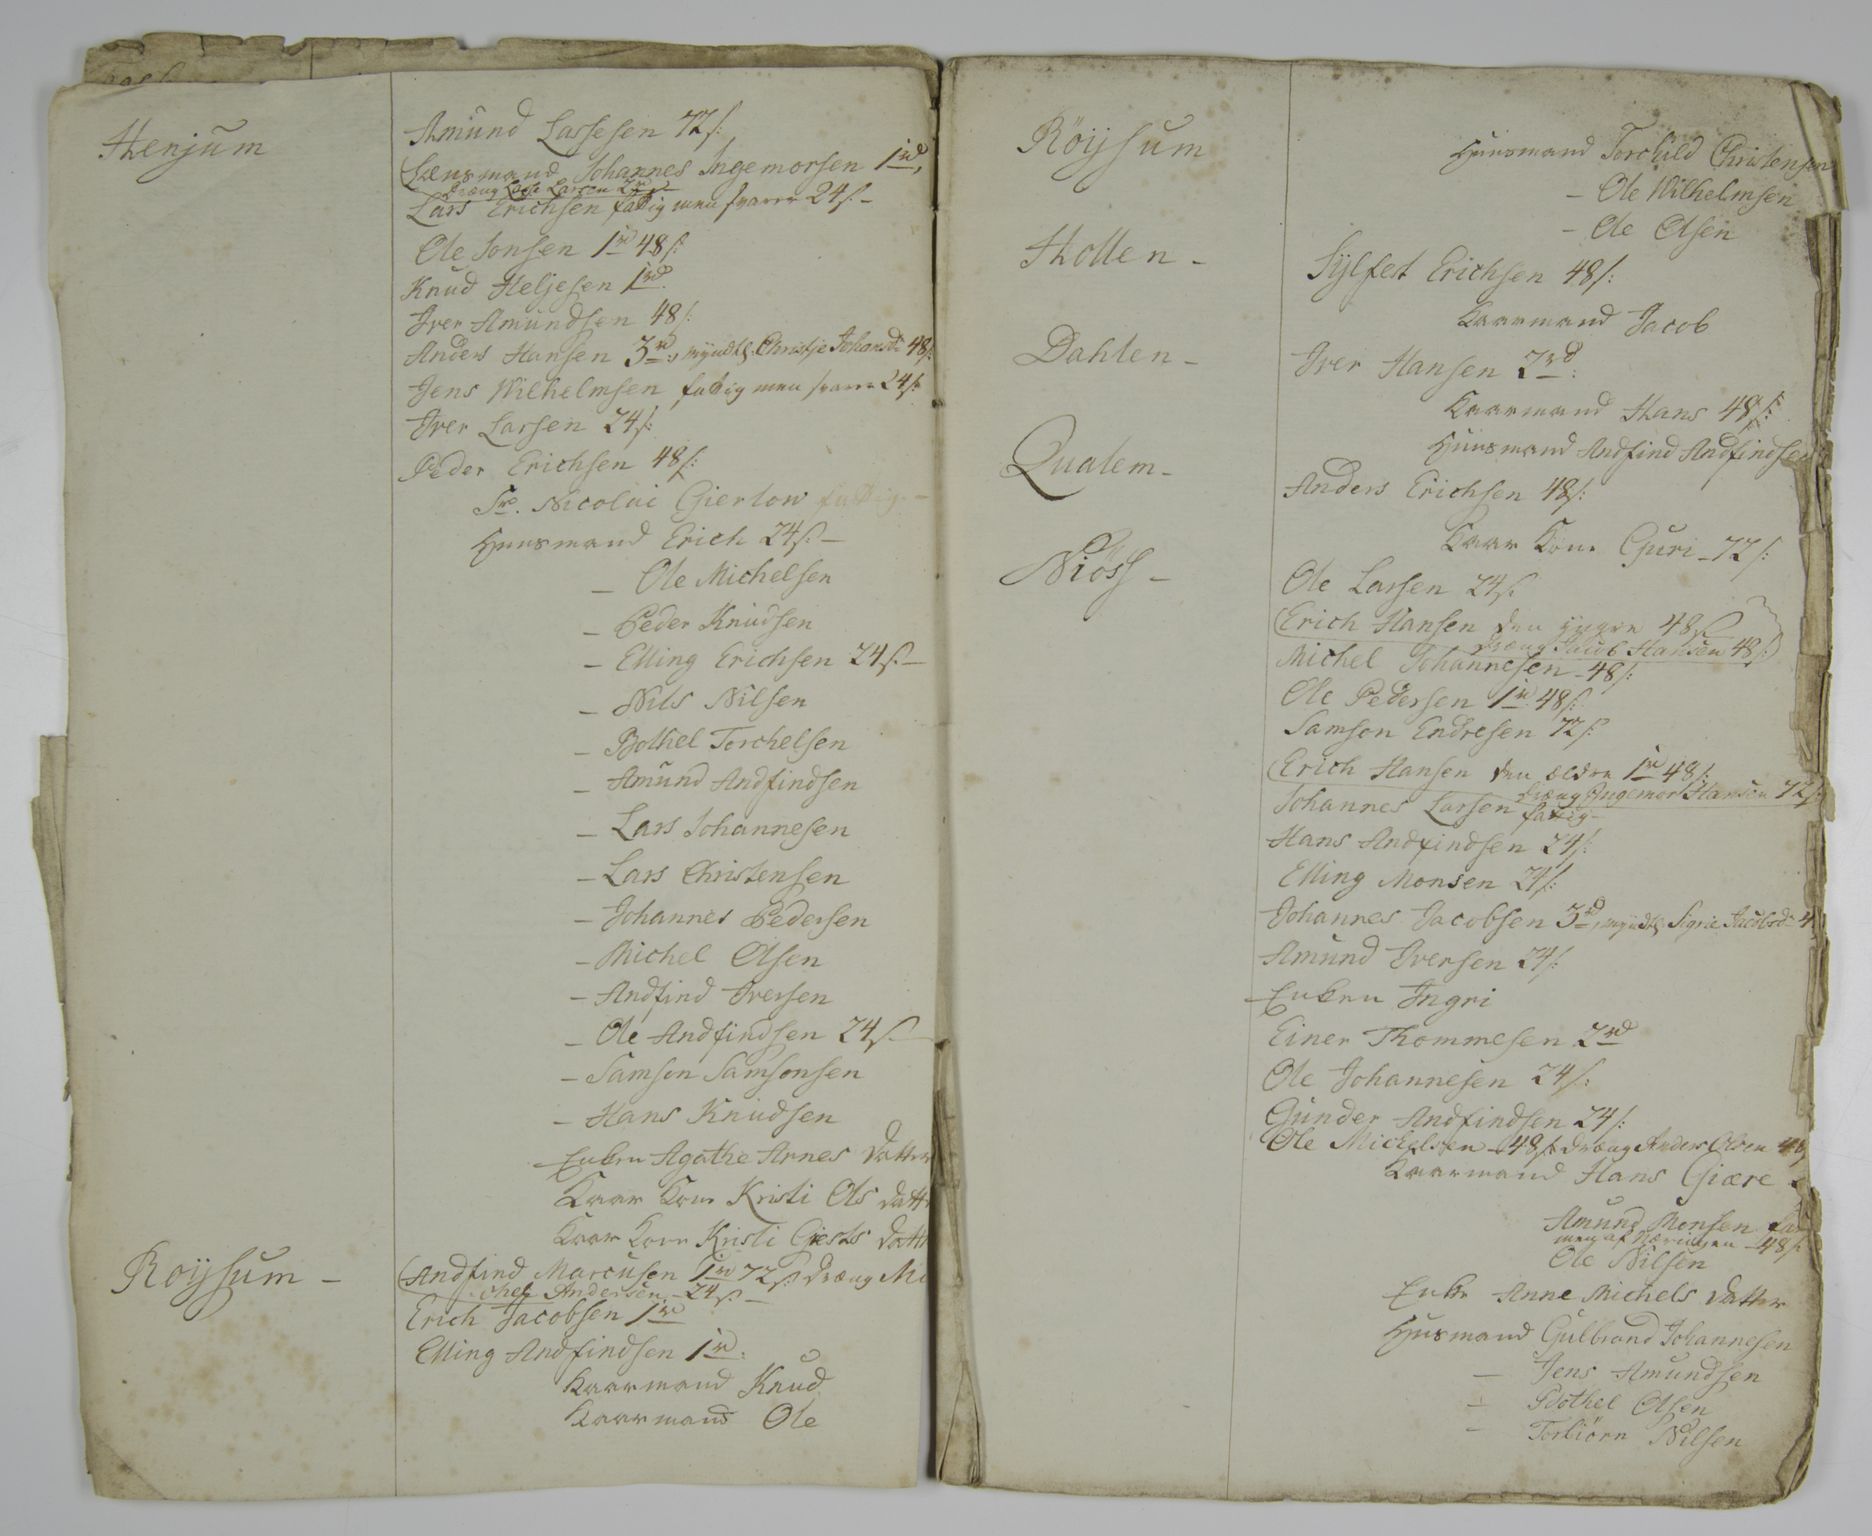 Henjum
Amund Lassesen 72 s:
Lensmand Johannes Ingemorsen 1 rd,
Dræng Lasse Larsen 2 rd
Lars Erichsen fattig men svarer 24 s. –
Ole Jonsen 1 rd 48 s:
Knud Heljesen 1 rd.
Iver Amundsen 48 s:
Anders Hansen 3 rd:, myndtl. Christje Johansd: 48 s:
Jens Wilhelmsen fattig men svarer 24 s:
Iver Larsen 24 s:
Peder Erichsen 48 s:
Sr. Nicolai Gierlow fattig. –
Huusmand Erich 24 s. –
– Ole Michelsen
– Peder Knudsen
– Elling Erichsen 24 s. –
– Nils Nilsen
– Bothel Torchelsen
– Amund Andfindsen
– Lars Johannesen
– Lars Christensen
– Johannes Pedersen
– Michel Olsen
– Andfind Iversen
– Ole Andfindsen 24 s. –
– Samson Samsonsen
– Hans Knudsen
Enken Agathe Arnes Datter
Kaar Kone Kristi Ols Datt
Kaar Kone Kristi Giests Datt
Roijsum –
Andfind Marcusen 1 rd 72 s: Dræng Mi
chel Andersen – 24 s. –
Erich Jacobsen 1 rd
Elling Andfindsen 1 rd:
Kaarmand Knud
Kaarmand Ole
Röijsum
Huusmand Torchild Christensen
– Ole Wilhelmsen
– Ole Olsen
Hollen –
Sylfest Erichsen 48 s:
Kaarmand Jacob
Dahlen –
Iver Hansen 2 rd:
Kaarmand Hans 48 s:
Huusmand Andfind Andfindsen
Qualem –
Anders Erichsen 48 s:
Kaar Kone Guri – 72 s:
Niöss –
Ole Larsen 24 s.
Erich Hansen den yngre 48 s
Dræng Jacob Hansen 48 s:
Michel Johannesen – 48 s:
Ole Pedersen 1 rd 48 s:
Samson Endresen 72 s:
Erich Hansen den ældre 1 rd 48 s:
Dræng Ingemor Hansen 72 s:
Johannes Larsen fattig –
Hans Andfindsen 24 s:
Elling Monsen 24 s:
Johannes Jacobsen 3 rd, myndtl. Sigrie Jacobsd: 4
Amund Iversen 24 s:
Enken Ingri
Einer Thommesen 2 rd
Ole Johannesen 24 s:
Gunder Andfindsen 24 s:
Ole Michelsen – 48 s: Dræng Anders Olsen 48
Kaarmand Hans Giære
Amund Monsen
men af Næringen – 48 s:
Ole Nilsen
Enke Anne Michels Datter
Husmand Gulbrand Johannesen
– Jens Amundsen
– Bothel Olsen
– Torbiörn Nilsen